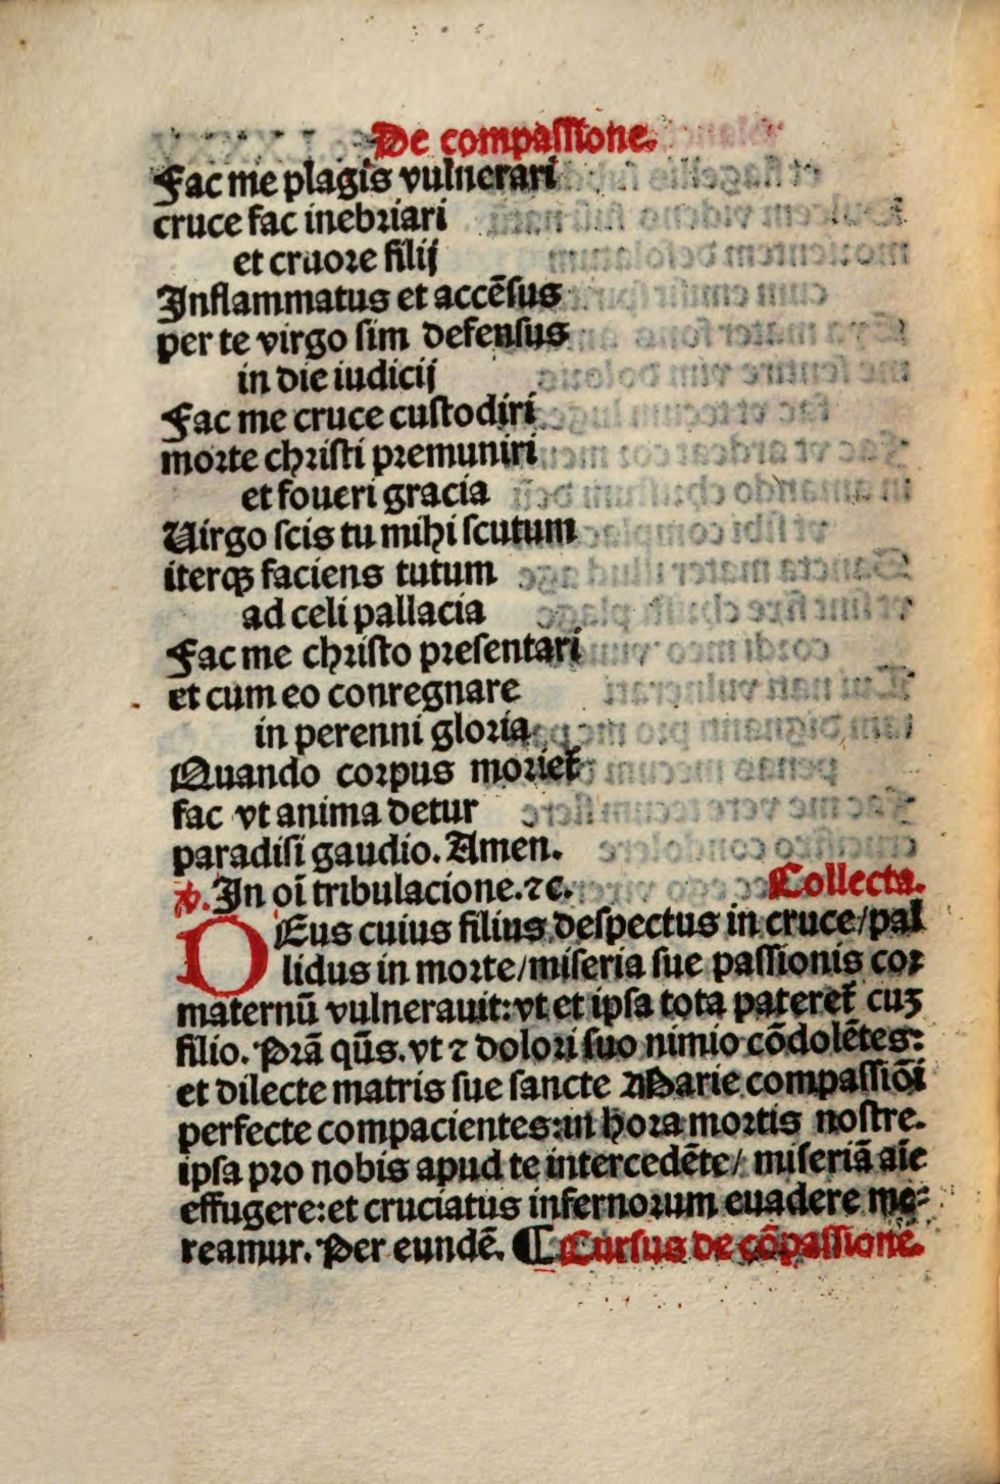 De compassione.
Fac me plagis vulnerari
cruce fac inebriari
et cruore filij
Inflammatus et accēsus
per te virgo sim defensus
in die iudicij
Fac me cruce custodiri
morte christi premuniri
et foueri gracia
Uirgo scis tu mihi scutum
iterqꝫ faciens tutum
ad celi pallacia
Fac me christo presentari
et cum eo conregnare
in perenni gloria
Quando corpus moriet᷑
fac vt anima detur
paradisi gaudio. Amen.
℣. In oı̄ tribulacione. ⁊c. Collecta.
DEus cuius filius despectus in cruce/pal
lidus in morte/miseria sue passionis cor
maternū vulnerauit: vt et ipsa tota pateret᷑ cuꝫ
filio. Prā qūs. vt ⁊ dolori suo nimio cōdolētes:
et dilecte matris sue sancte Marie compassiōi
perfecte compacientes: in hora mortis nostre.
ipsa pro nobis apud te intercedēte/ miseriā aı̄e
effugere: et cruciatus infernorum euadere me⸗
reamur. Per eundē. ¶ Cursus de cōpassione.